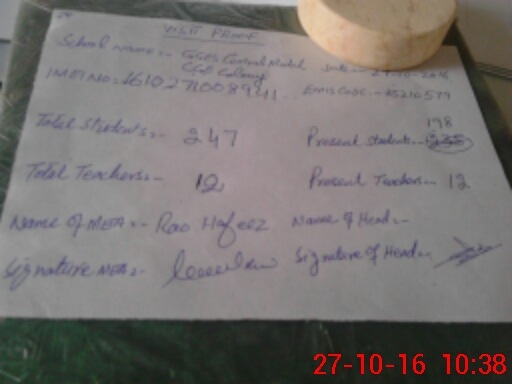 VISIT PROOF
School name:- GGES Central Model Date:- 27-10-2016
Colony
IMEI NO:- Emis Code:-
198
Total Students:- 247 Present Students:-
Total Teachers:- 12 Present Teachers:- 12
Name of MEA:- Rao Hafeez Name of Head:-
Signature MEA:- Signature of Head:-
27-10-16 10:38